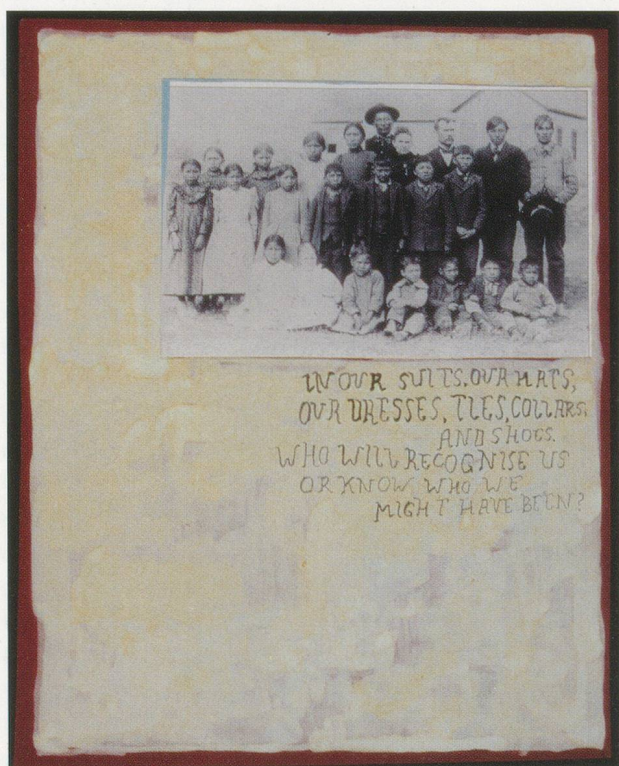 IN OUR SUITS, OUR HATS,
OUR DRESSES, TIES, COLLARS,
AND SHOES.
WHO WILL RECOGNISE US
OR KNOW WHO WE
MIGHT HAVE BEEN?